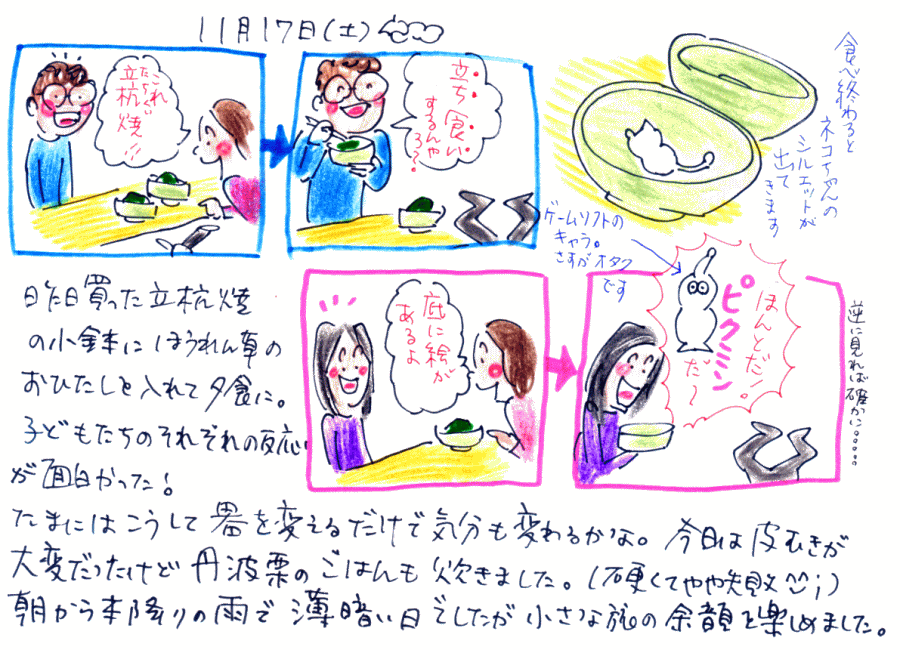 11月17日(土)
これ
たちくい
立杭焼!!
立ち食い
するんやろ?
食べ終わると
ネコちゃんの
シルエットが
出て
きます
ゲームソフトの
キャラ。
さすがオタク
です
底に絵が
あるよ
ほんとだ!
ピクミン
だ〜
逆に見れば確かに。。。。。
昨日買った立杭焼
の小鉢にほうれん草の
おひたしを入れて夕食に。
子どもたちのそれぞれの反応
が面白かった!
たまにはこうして器を変えるだけで気分も変わるかな。今日は皮むきが
大変だったけど丹波栗のごはんも炊きました。(硬くてやや失敗^^;)
朝から本降りの雨で薄暗い日でしたが小さな旅の余韻を楽しめました。